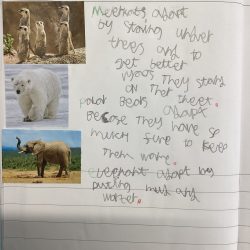 Meerkats adapt
by staning under
trees and to
get better
They stand
on their feet.
Polar Bears adapt
Because They have so
much fure to keep
Them worm.
elephant adapt by
putting mud and